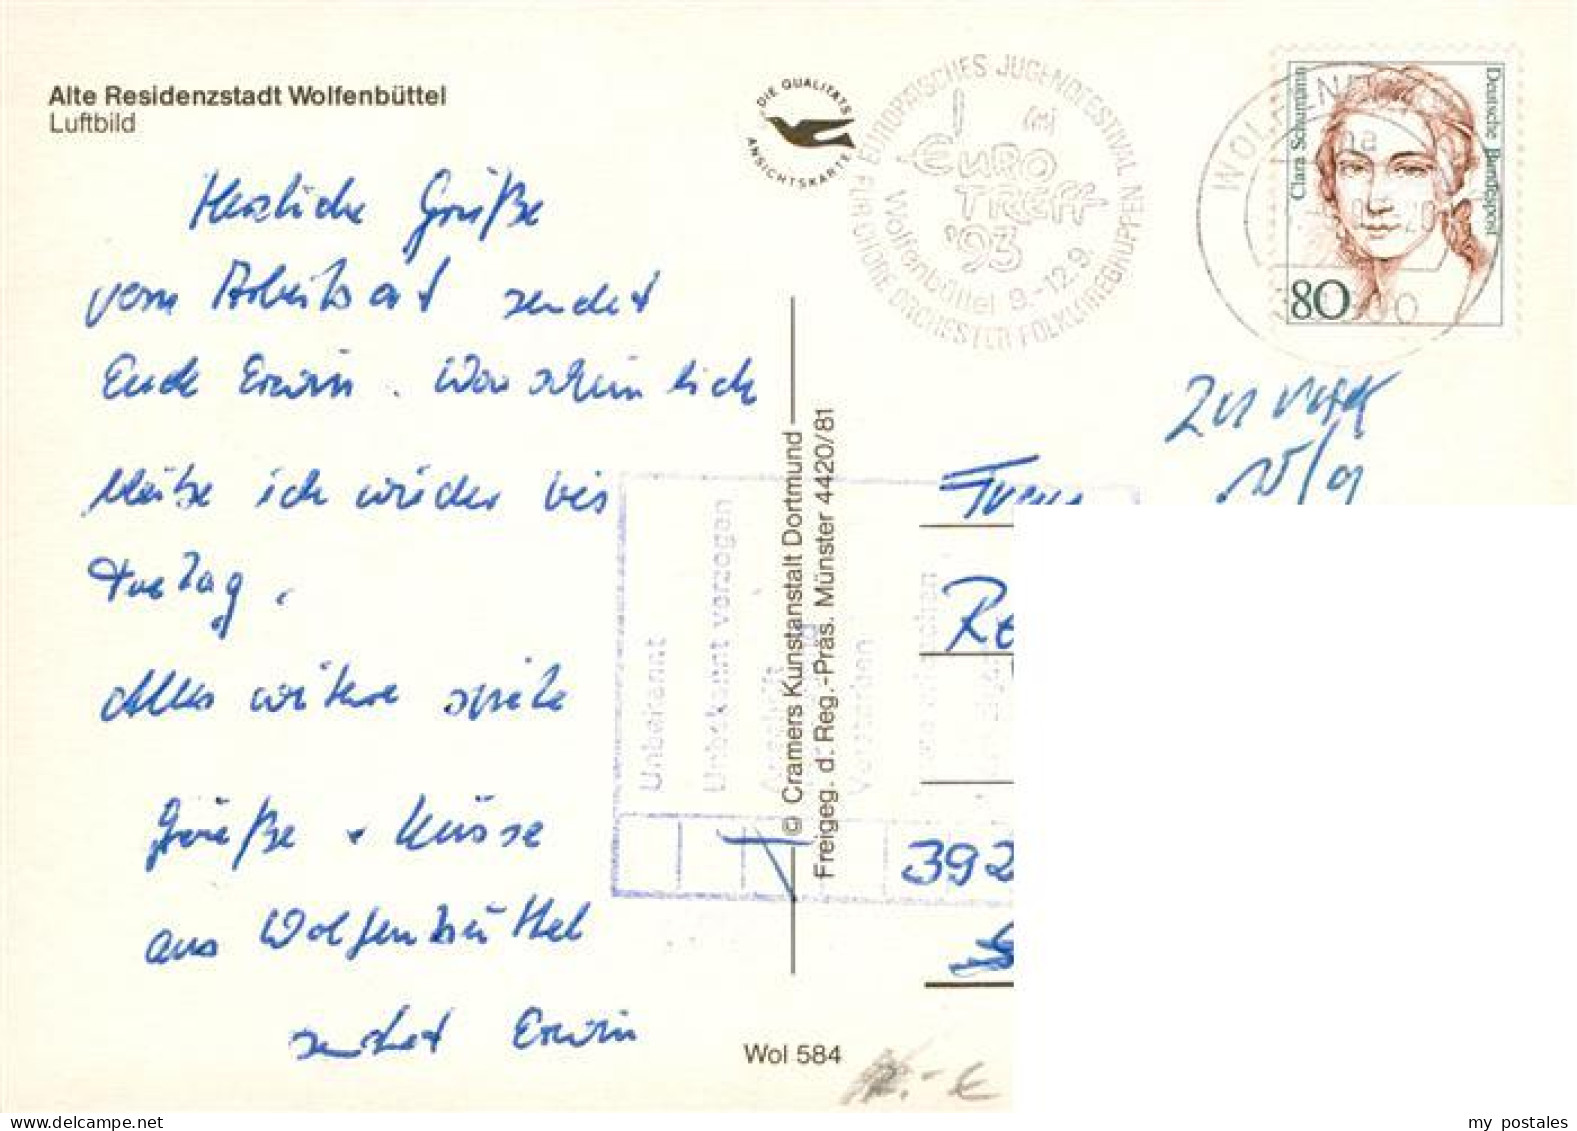 Alte Residenzstadt Wolfenbüttel
Luftbild
DIE QUALITÄTS
ANSICHTSKARTE
EUROPÄISCHES JUGENDFESTIVAL
FÜR CHÖRE ORCHESTER FOLKLOREGRUPPEN
EURO
TREFF
'93
Wolfenbüttel 9.-12.9.
Clara Schumann
Deutsche Bundespost
80
Herzliche Grüße
vom Arbeitsort sendet
Euch Erwin. Warscheinlich
bleibe ich wieder bis
Freitag.
Alles weitere später
Grüße + Küsse
aus Wolfenbüttel
sendet Erwin
Zurück
Unbekannt
Unbekannt verzogen
© Cramers Kunstanstalt Dortmund
Freigeg. d. Reg.-Präs. Münster 4420/81
Re
392
Wol 584
my postales